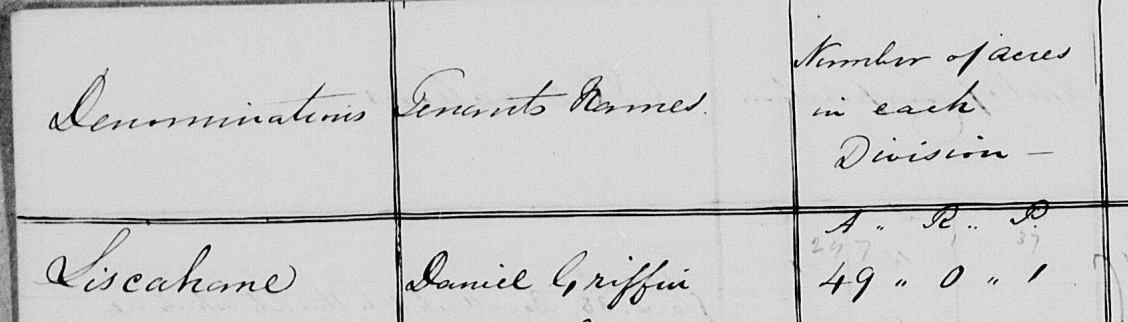 Denominations
Tenants Names.
Number of acres
in each
Division —
A " R " P.
Liscahane
Daniel Griffin
49 " 0 " 1